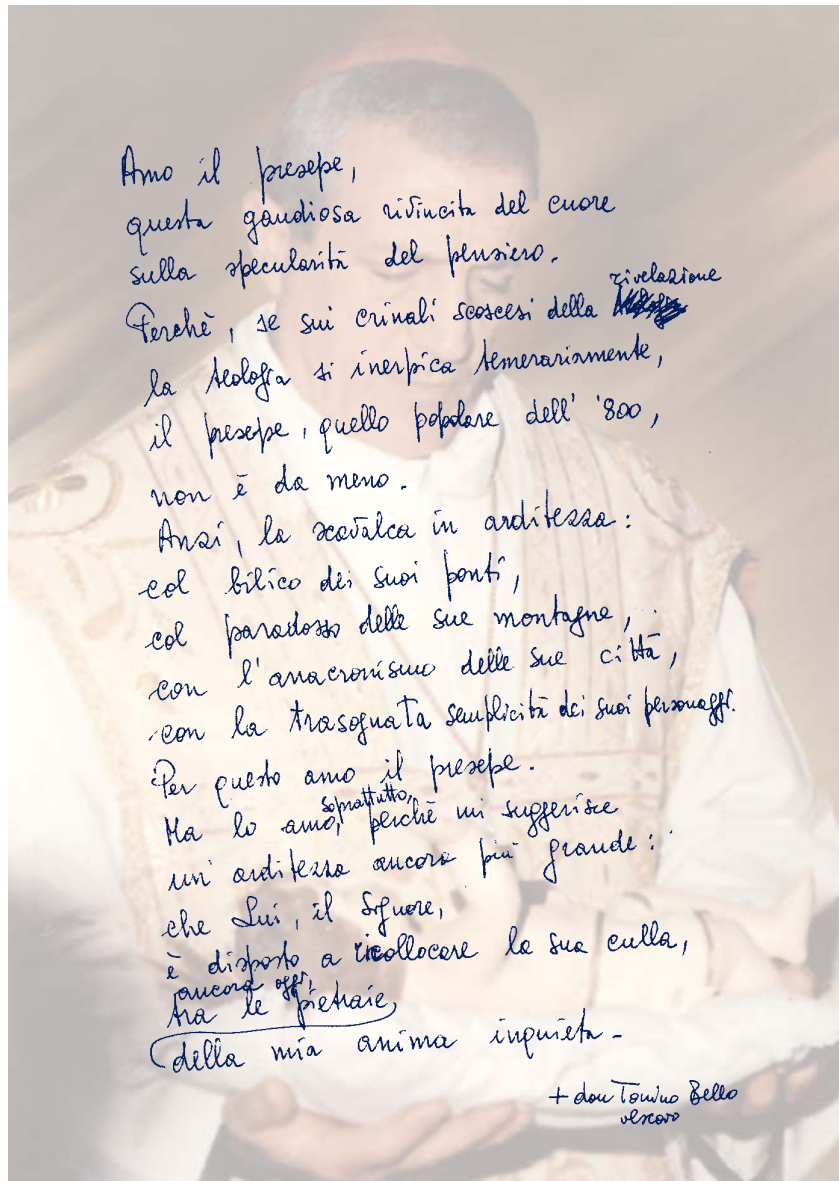 Amo il presepe,
questa gaudiosa rivincita del cuore
sulla specularità del pensiero.
rivelazione
Perchè, se sui crinali scoscesi della
la teologia si inerpica temerariamente,
il presepe, quello popolare dell' '800,
non è da meno.
Anzi, la scavalca in arditezza:
col bilico dei suoi ponti,
col paradosso delle sue montagne,
con l'anacronismo delle sue città,
con la trasognata semplicità dei suoi personaggi.
Per questo amo il presepe.
soprattutto,
Ma lo amo, perchè mi suggerisce
un' arditezza ancora più grande:
che Lui, il Signore,
è disposto a ricollocare la sua culla,
ancora oggi,
tra le pietraie,
della mia anima inquieta.
+ don Tonino Bello
vescovo